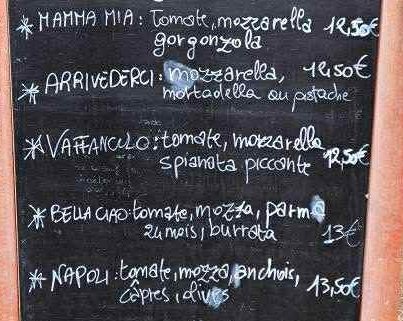 * MAMMA MIA : tomate, mozzarella 12,50€
gorgonzola
* ARRIVEDERCI : mozzarella, 12,50€
mortadella ou pistache
* VAFFANCULO : tomate, mozzarella
spianata piccante 12,50€
* BELLA CIAO : tomate, mozza, parma
24 mois, burrata 13€
* NAPOLI : tomate, mozza, anchois,
câpres, olives 13,50€